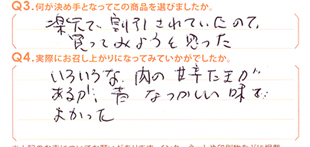 Q3.何が決め手となってこの商品を選びましたか。
楽天で、割引されていたので、
買ってみようと思った
Q4.実際にお召し上がりになってみていかがでしたか。
いろいろな、肉の甘辛だまが
あるが、昔なつかしい味で
よかった